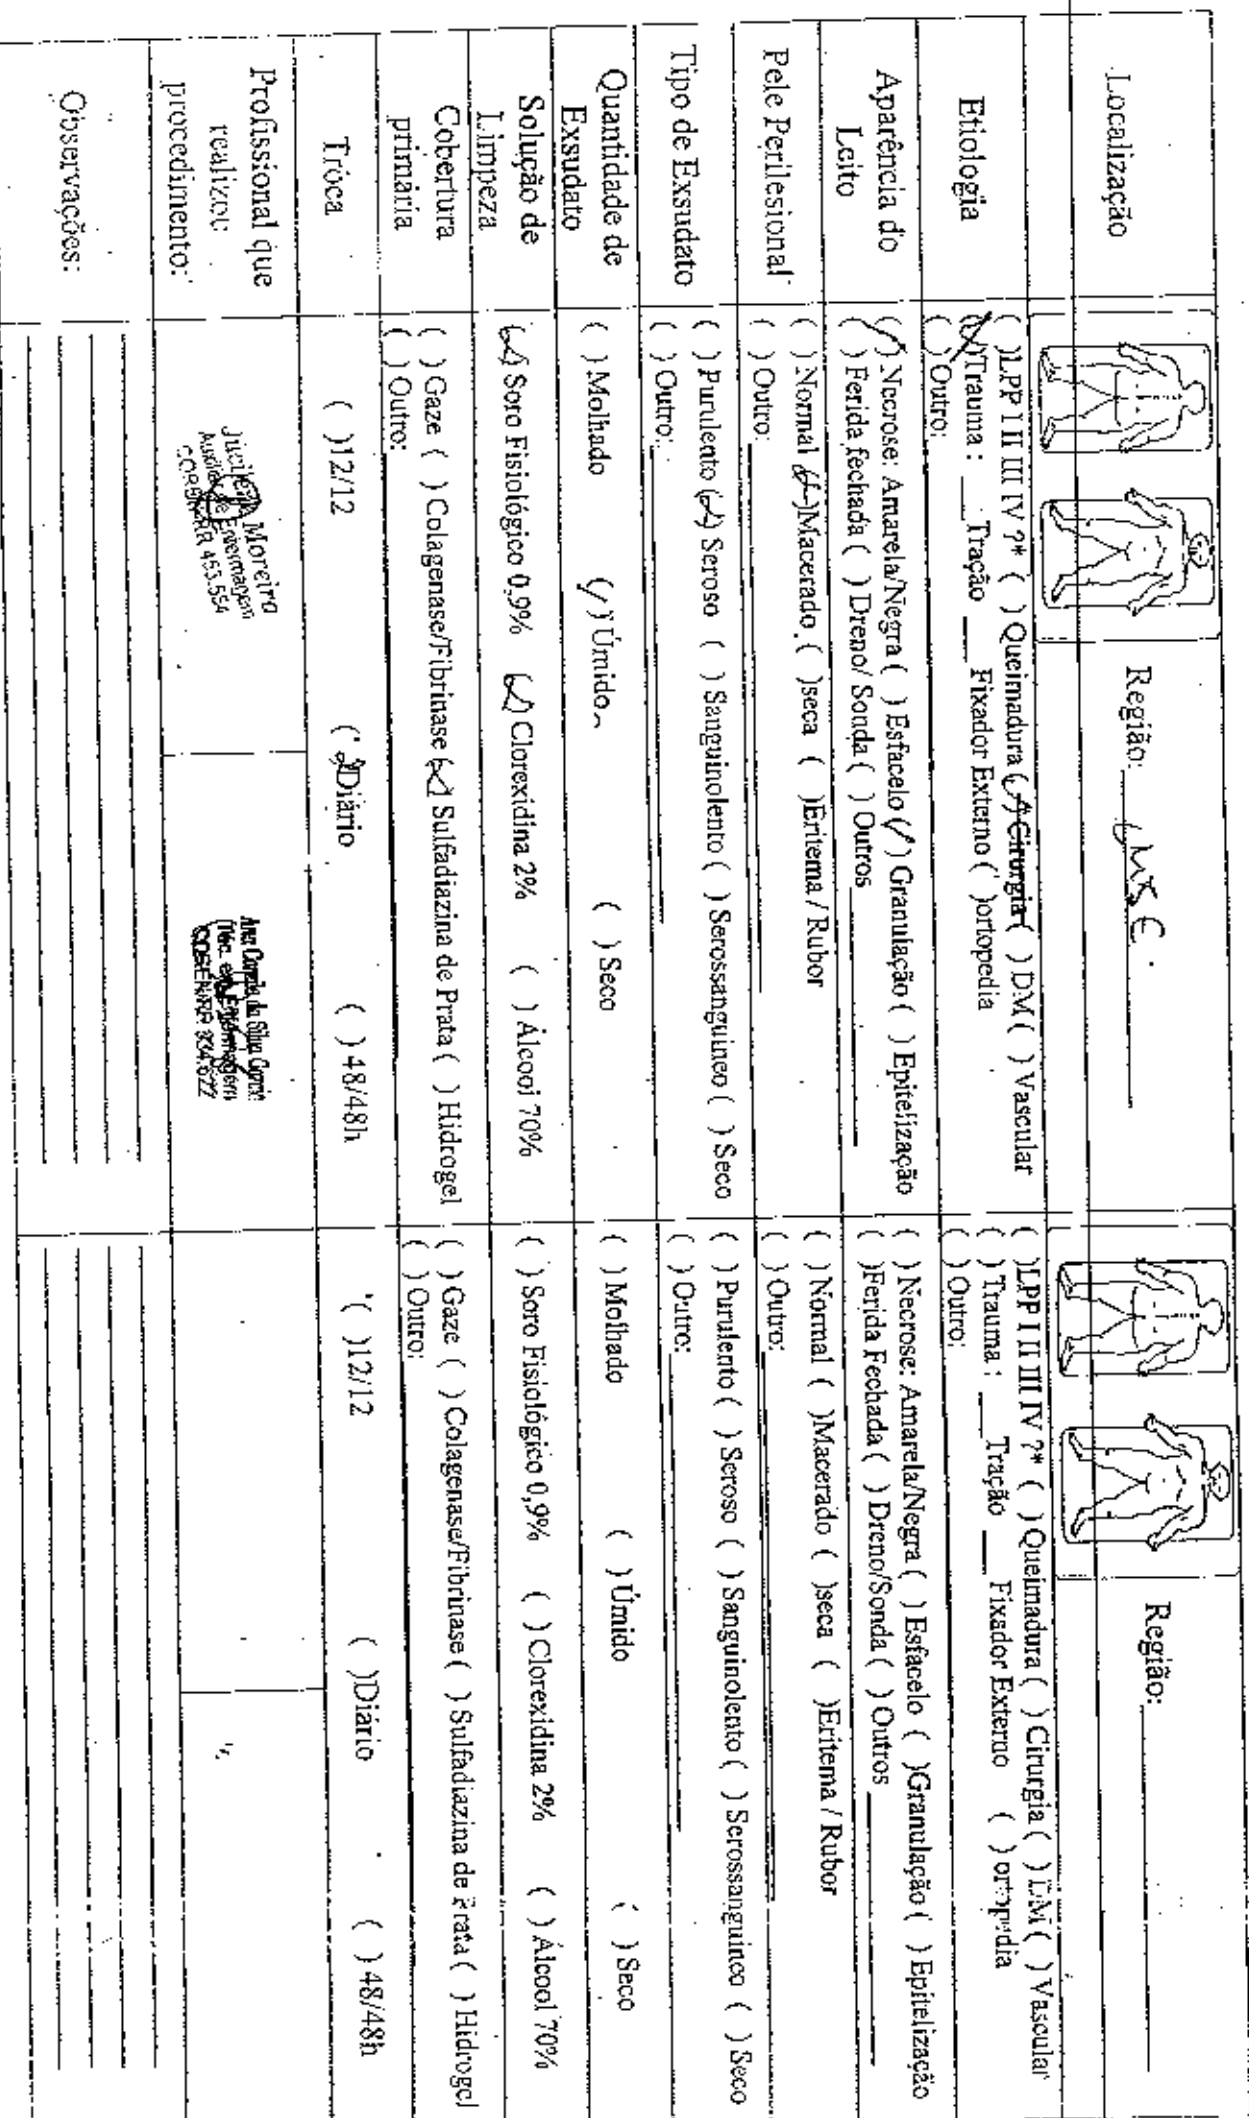 Localização
Região: MSE.
Região:
Etiologia
( )LPP I II III IV ?* ( ) Queimadura (✓) Cirurgia ( ) DM ( ) Vascular
(X)Trauma : __ Tração __ Fixador Externo ( )ortopedia
( ) Outro:
( )LPP I II III IV ?* ( ) Queimadura ( ) Cirurgia ( ) DM ( ) Vascular
( ) Trauma : __ Tração __ Fixador Externo ( ) ortopedia
( ) Outro:
Aparência do
Leito
(✓) Necrose: Amarela/Negra ( ) Esfacelo (✓) Granulação ( ) Epitelização
( ) Ferida fechada ( ) Dreno/ Sonda ( ) Outros
( ) Necrose: Amarela/Negra ( ) Esfacelo ( )Granulação ( ) Epitelização
( )Ferida Fechada ( ) Dreno/Sonda ( ) Outros
Pele Perilesional
( ) Normal (✓)Macerado ( )seca ( )Eritema / Rubor
( ) Outro:
( ) Normal ( )Macerado ( )seca ( )Eritema / Rubor
( ) Outro:
Tipo de Exsudato
( ) Purulento (✓) Seroso ( ) Sanguinolento ( ) Serossanguineo ( ) Seco
( ) Outro:
( ) Purulento ( ) Seroso ( ) Sanguinolento ( ) Serossanguineo ( ) Seco
( ) Outro:
Quantidade de
Exsudato
( ) Molhado (✓) Úmido ( ) Seco
( ) Molhado ( ) Úmido ( ) Seco
Solução de
Limpeza
(✓) Soro Fisiológico 0,9% (✓) Clorexidina 2% ( ) Álcool 70%
( ) Soro Fisiológico 0,9% ( ) Clorexidina 2% ( ) Álcool 70%
Cobertura
primária
( ) Gaze ( ) Colagenase/Fibrinase (✓) Sulfadiazina de Prata ( ) Hidrogel
( ) Outro:
( ) Gaze ( ) Colagenase/Fibrinase ( ) Sulfadiazina de Prata ( ) Hidrogel
( ) Outro:
Troca
( )12/12 (✓)Diário ( ) 48/48h
( )12/12 ( )Diário ( ) 48/48h
Profissional que
realizou
procedimento:
Moreira
Auxiliar de Enfermagem
COREN-RR 453.554
Ana da Silva
Téc. em Enfermagem
COREN-RR
Observações: